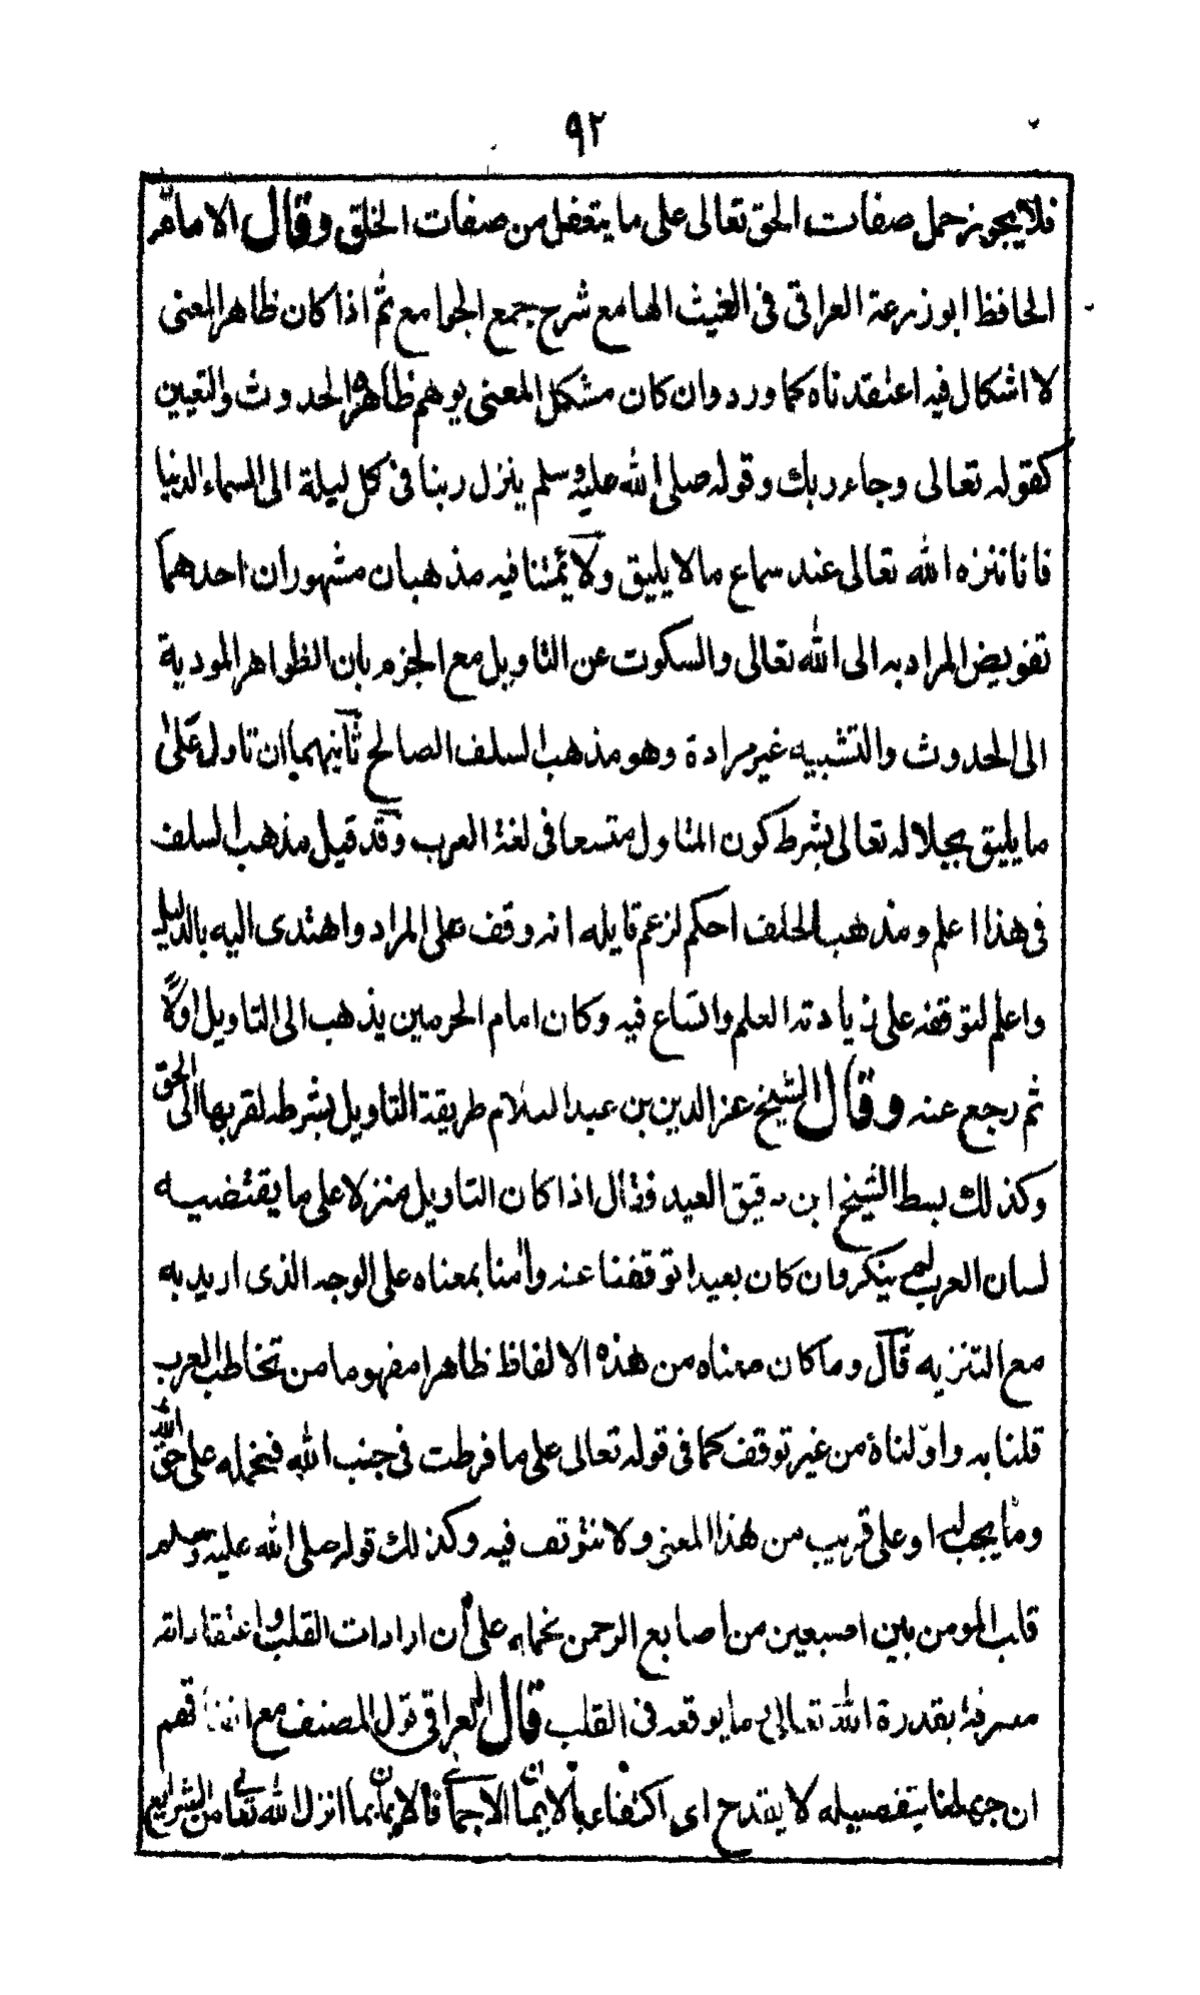 ٩٢
فلا يجوز حمل صفات الحق تعالى على ما يتعقل من صفات الخلق وقال الامام
الحافظ ابو زرعة العراقى فى الغيث الهامع شرح جمع الجوامع ثم اذا كان ظاهر المعنى
لا اشكال فيه اعتقدناه كما ورد وان كان مشكل المعنى يوهم ظاهره الحدوث والتعيين
كقوله تعالى وجاء ربك وقوله صلى الله عليه وسلم ينزل ربنا فى كل ليلة الى السماء الدنيا
فاناننزه الله تعالى عند سماع مالا يليق ولائمتنا فيه مذهبان مشهوران احدهما
تفويض المراد به الى الله تعالى والسكوت عن التاويل مع الجزم بان الظواهر المودية
الى الحدوث والتشبيه غير مرادة وهو مذهب السلف الصالح ثانيهما ان تاول على
ما يليق بجلاله تعالى بشرط كون المتاول متسعا فى لغة العرب وقد قيل مذهب السلف
فى هذا اعلم ومذهب الخلف احكم لزعم قايله انه وقف على المراد واهتدى اليه بالدليل
واعلم لتوقفه على زيادته العلم واتساع فيه وكان امام الحرمين يذهب الى التاويل اولا
ثم رجع عنه وقال الشيخ عز الدين بن عبد السلام طريقة التاويل بشرطه لقربها الى الحق
وكذلك بسط الشيخ ابن دقيق العيد فقال اذا كان التاويل منزلا على ما يقتضيه
لسان العرب لم ينكر وان كان بعيدا توقفنا عنه وامنا بمعناه على الوجه الذى اريد به
مع التنزيه قال وما كان معناه من هذه الالفاظ ظاهرا مفهوما من تخاطب العرب
قلنا به واولناه من غير توقف كما فى قوله تعالى على ما فرطت فى جنب الله فنحمله على حق الله
وما يجب له او على قريب من هذا المعنى ولا نتوقف فيه وكذلك قوله صلى الله عليه وسلم
قلب المومن بين اصبعين من اصابع الرحمن نحمله على ان ارادات القلب واعتقاداته
مصرفة بقدرة الله تعالى وما يوقعه فى القلب قال العراقى قول المصنف مع
ان جهلنا بتفصيله لا يقدح اى اكتفاء بالايمان الاجمالى فالايمان بما انزل الله تعالى من الشرايع